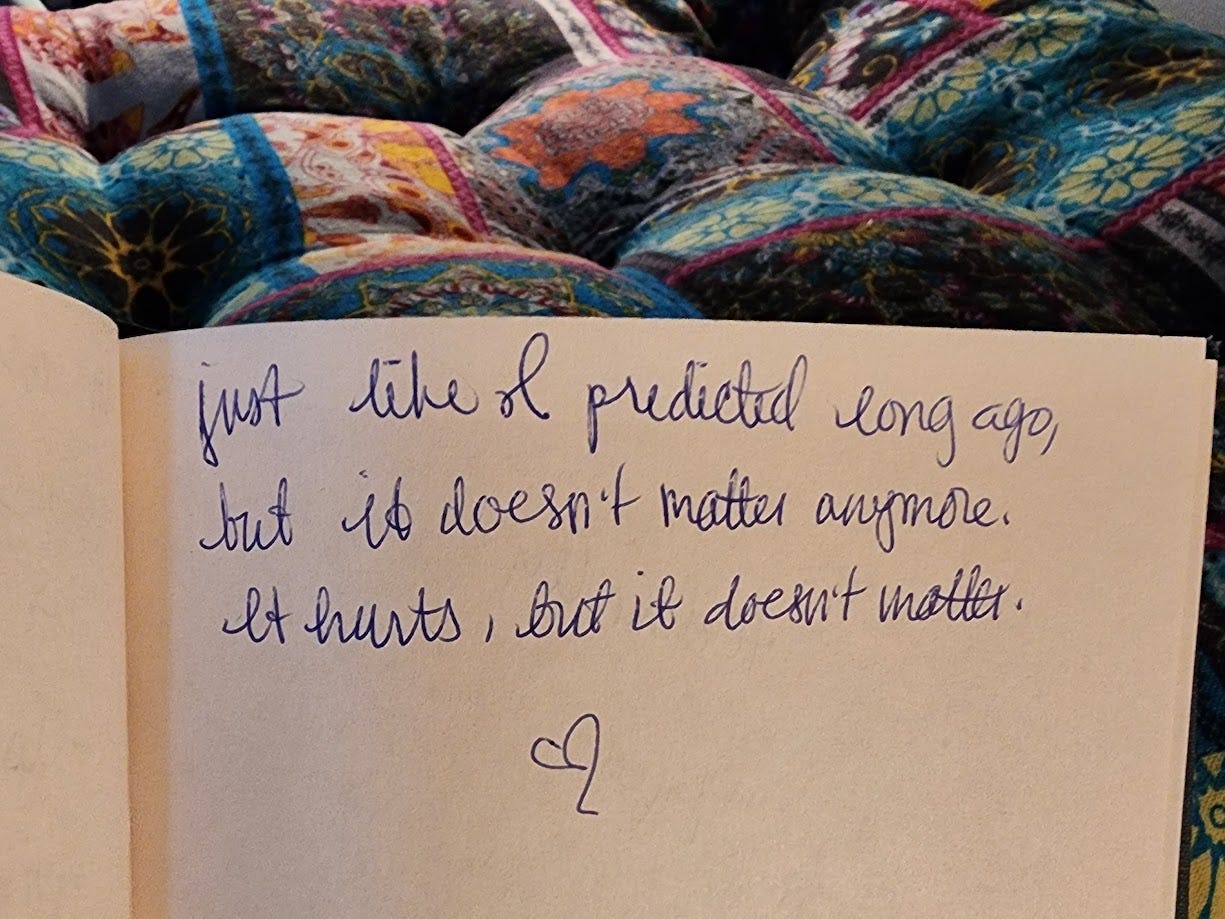 just like I predicted long ago,
but it doesn't matter anymore.
It hurts, but it doesn't matter.